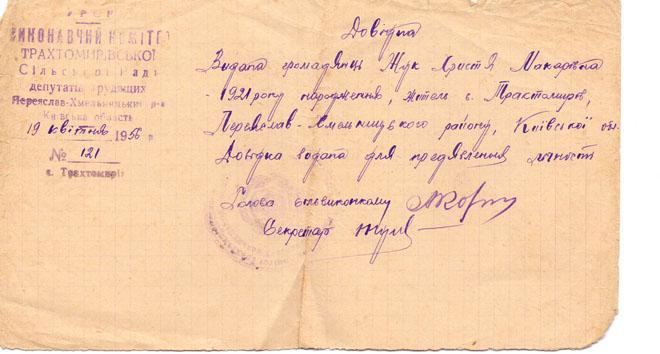 УРСР
ВИКОНАВЧИЙ КОМІТЕТ
ТРАХТОМИРІВСЬКОЇ
Сільської Ради
депутатів трудящих
Переяслав-Хмельницький р-н
Київська область
19 квітня 1956 р
№ 121
с. Трахтомирів
Довідка
Видана громадянці Жук Христя Макарівна
1921 року народження, житель с. Трактомирів,
Переяслав-Хмельницького району, Київської обл.
Довідка видана для предявлення личності
Голова сільвиконкому
Секретар